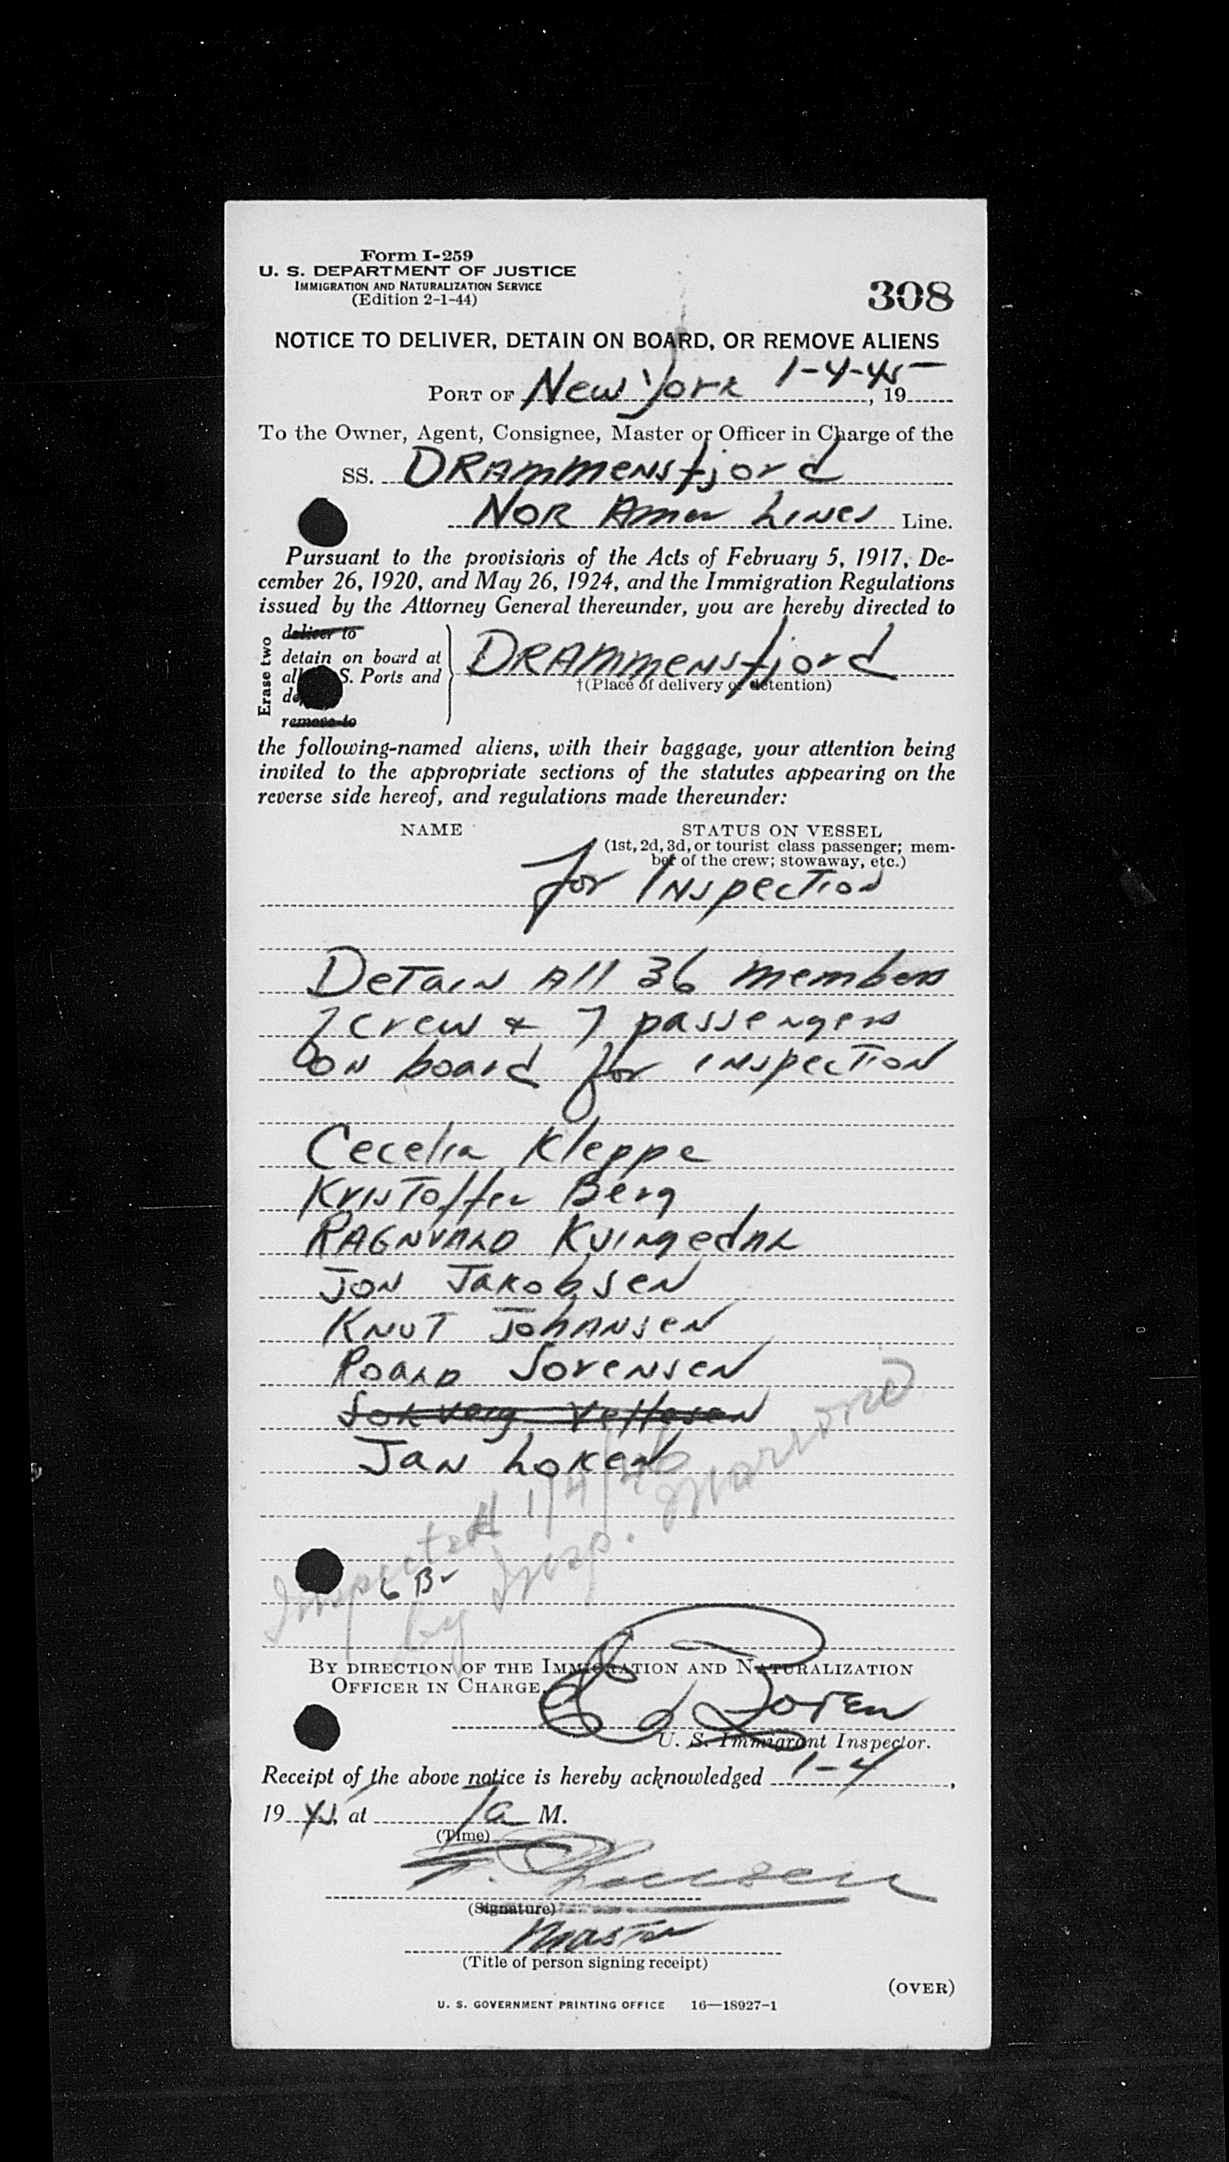 Form I-259
U. S. DEPARTMENT OF JUSTICE
IMMIGRATION AND NATURALIZATION SERVICE
(Edition 2-1-44)
308
NOTICE TO DELIVER, DETAIN ON BOARD, OR REMOVE ALIENS
PORT OF New York 1-4-45, 19
To the Owner, Agent, Consignee, Master or Officer in Charge of the
SS. DRAMMENSfjord
NOR Amer LINES Line.
Pursuant to the provisions of the Acts of February 5, 1917, De-
cember 26, 1920, and May 26, 1924, and the Immigration Regulations
issued by the Attorney General thereunder, you are hereby directed to
Erase two
deliver to
detain on board at
all S. Ports and
remove to
DRAMMENSfjord
†(Place of delivery or detention)
the following-named aliens, with their baggage, your attention being
invited to the appropriate sections of the statutes appearing on the
reverse side hereof, and regulations made thereunder:
NAME STATUS ON VESSEL
(1st, 2d, 3d, or tourist class passenger; mem-
ber of the crew; stowaway, etc.)
for INSpecTion
DeTaiN All 36 members
crew & 7 passengers
ON board for INSpecTION
Cecelia Kleppe
KrisToffer Berg
RAGNVALD
JON JAKobsen
KNUT JOHANSEN
Sorensen
Jan Loken
Inspected 1/4/46
by Insp. Marrone
BY DIRECTION OF THE IMMIGRATION AND NATURALIZATION
OFFICER IN CHARGE,
U. S. Immigrant Inspector.
Receipt of the above notice is hereby acknowledged 1-4,
19 45, at 7a M.
(Time)
(Signature)
Master
(Title of person signing receipt)
(OVER)
U. S. GOVERNMENT PRINTING OFFICE 16—18927-1